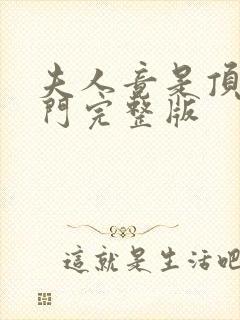 夫人竟是頂
門完整版
這就是生活吧